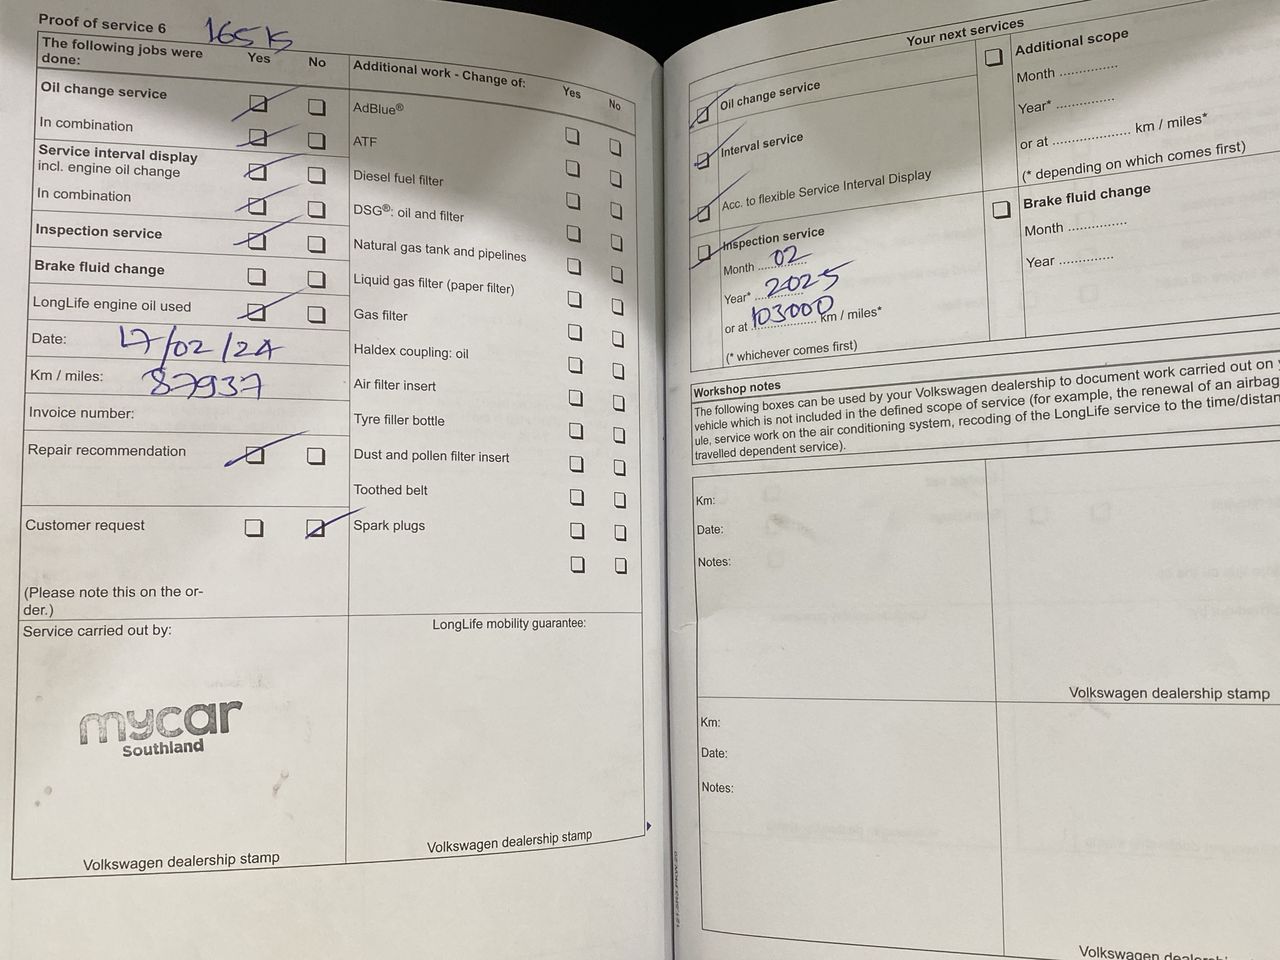 Proof of service 6 165K
The following jobs were done: Yes No
Oil change service
In combination
Service interval display
incl. engine oil change
In combination
Inspection service
Brake fluid change
LongLife engine oil used
Date: 17/02/24
Km / miles: 87937
Invoice number:
Repair recommendation
Customer request
(Please note this on the or-
der.)
Service carried out by:
mycar
Southland
Volkswagen dealership stamp
Additional work - Change of: Yes No
AdBlue®
ATF
Diesel fuel filter
DSG®: oil and filter
Natural gas tank and pipelines
Liquid gas filter (paper filter)
Gas filter
Haldex coupling: oil
Air filter insert
Tyre filler bottle
Dust and pollen filter insert
Toothed belt
Spark plugs
LongLife mobility guarantee:
Volkswagen dealership stamp
Your next services
Oil change service
Interval service
Acc. to flexible Service Interval Display
Inspection service
Month ........ 02
Year* ........ 2025
or at ........ 103000 km / miles*
(* whichever comes first)
Additional scope
Month ..............
Year* ..............
or at .................... km / miles*
(* depending on which comes first)
Brake fluid change
Month ..............
Year ..............
Workshop notes
The following boxes can be used by your Volkswagen dealership to document work carried out on
vehicle which is not included in the defined scope of service (for example, the renewal of an airbag
ule, service work on the air conditioning system, recoding of the LongLife service to the time/distan
travelled dependent service).
Km:
Date:
Notes:
Volkswagen dealership stamp
Km:
Date:
Notes:
Volkswagen dealership